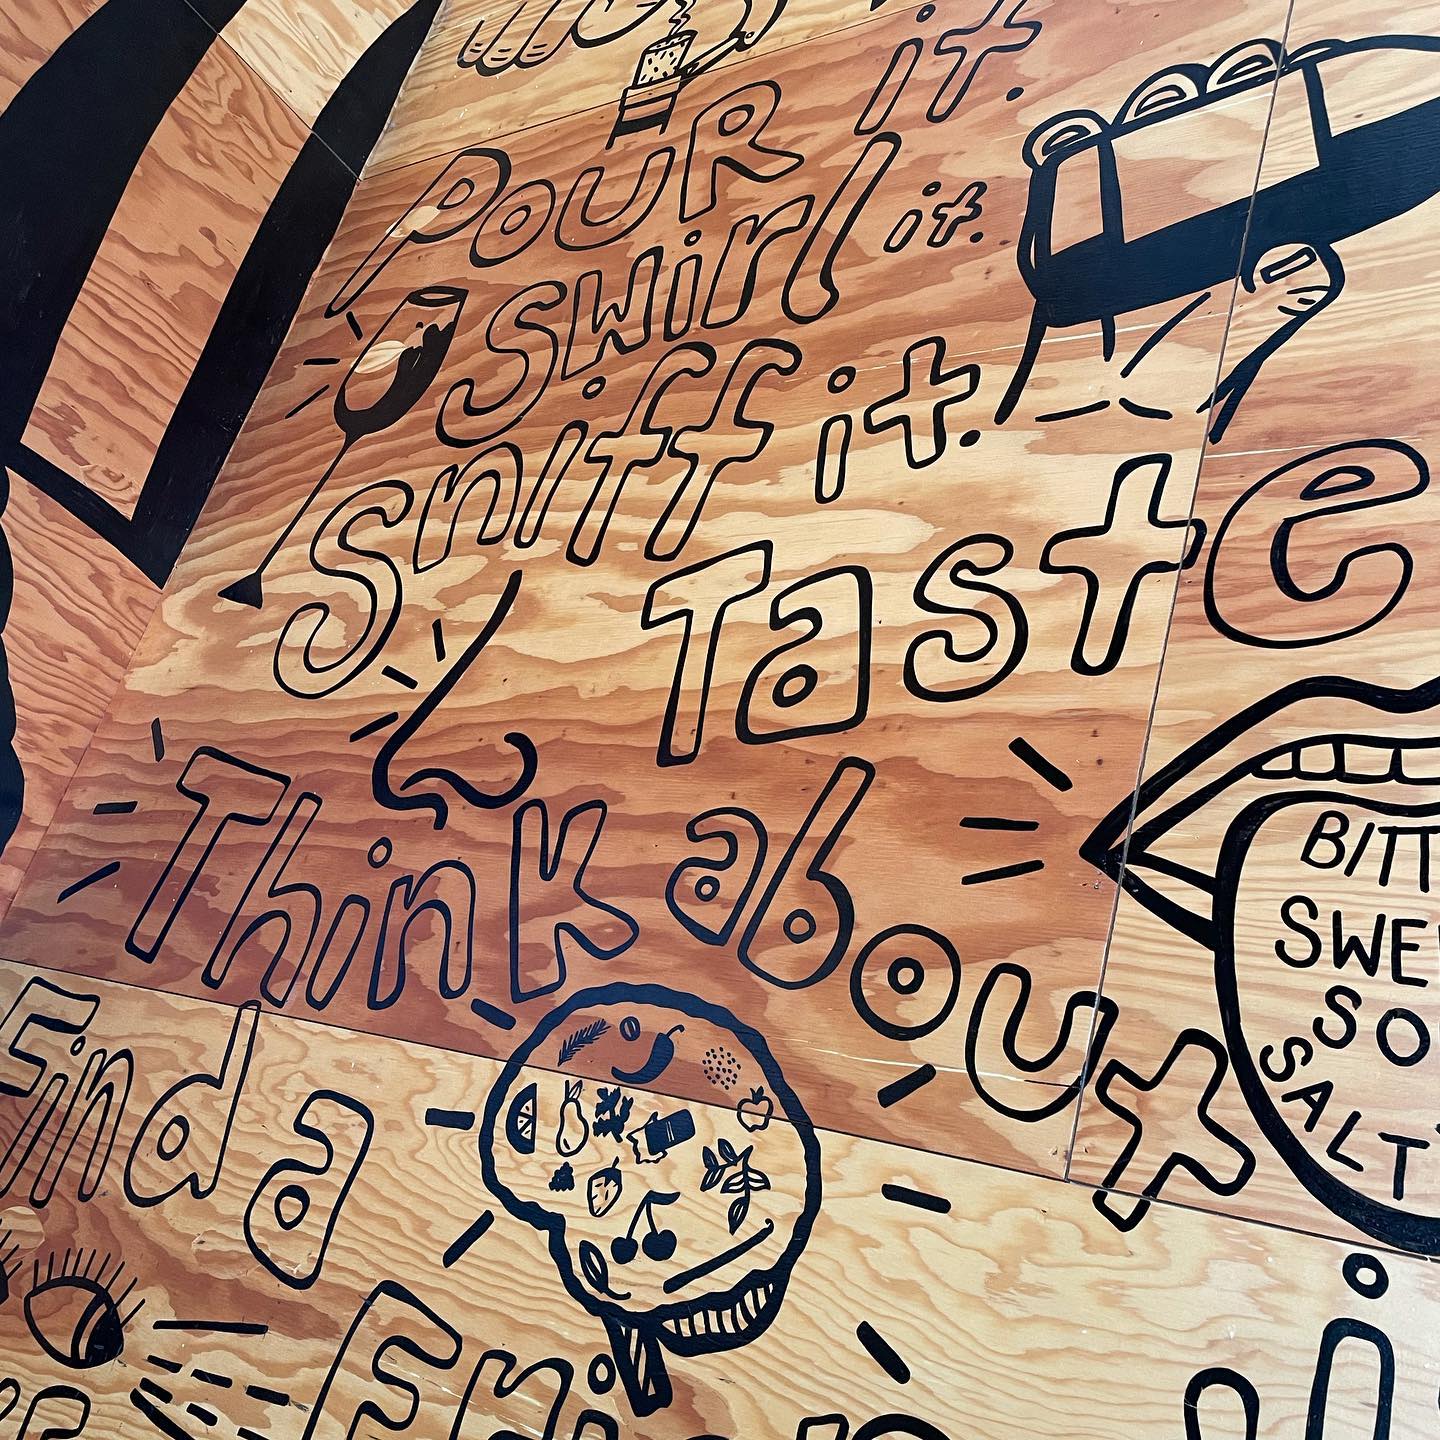 it.
POUR
swirl it.
Sniff it.
Taste
Think about
BITT
SWE
SO
SALT
it
Find a